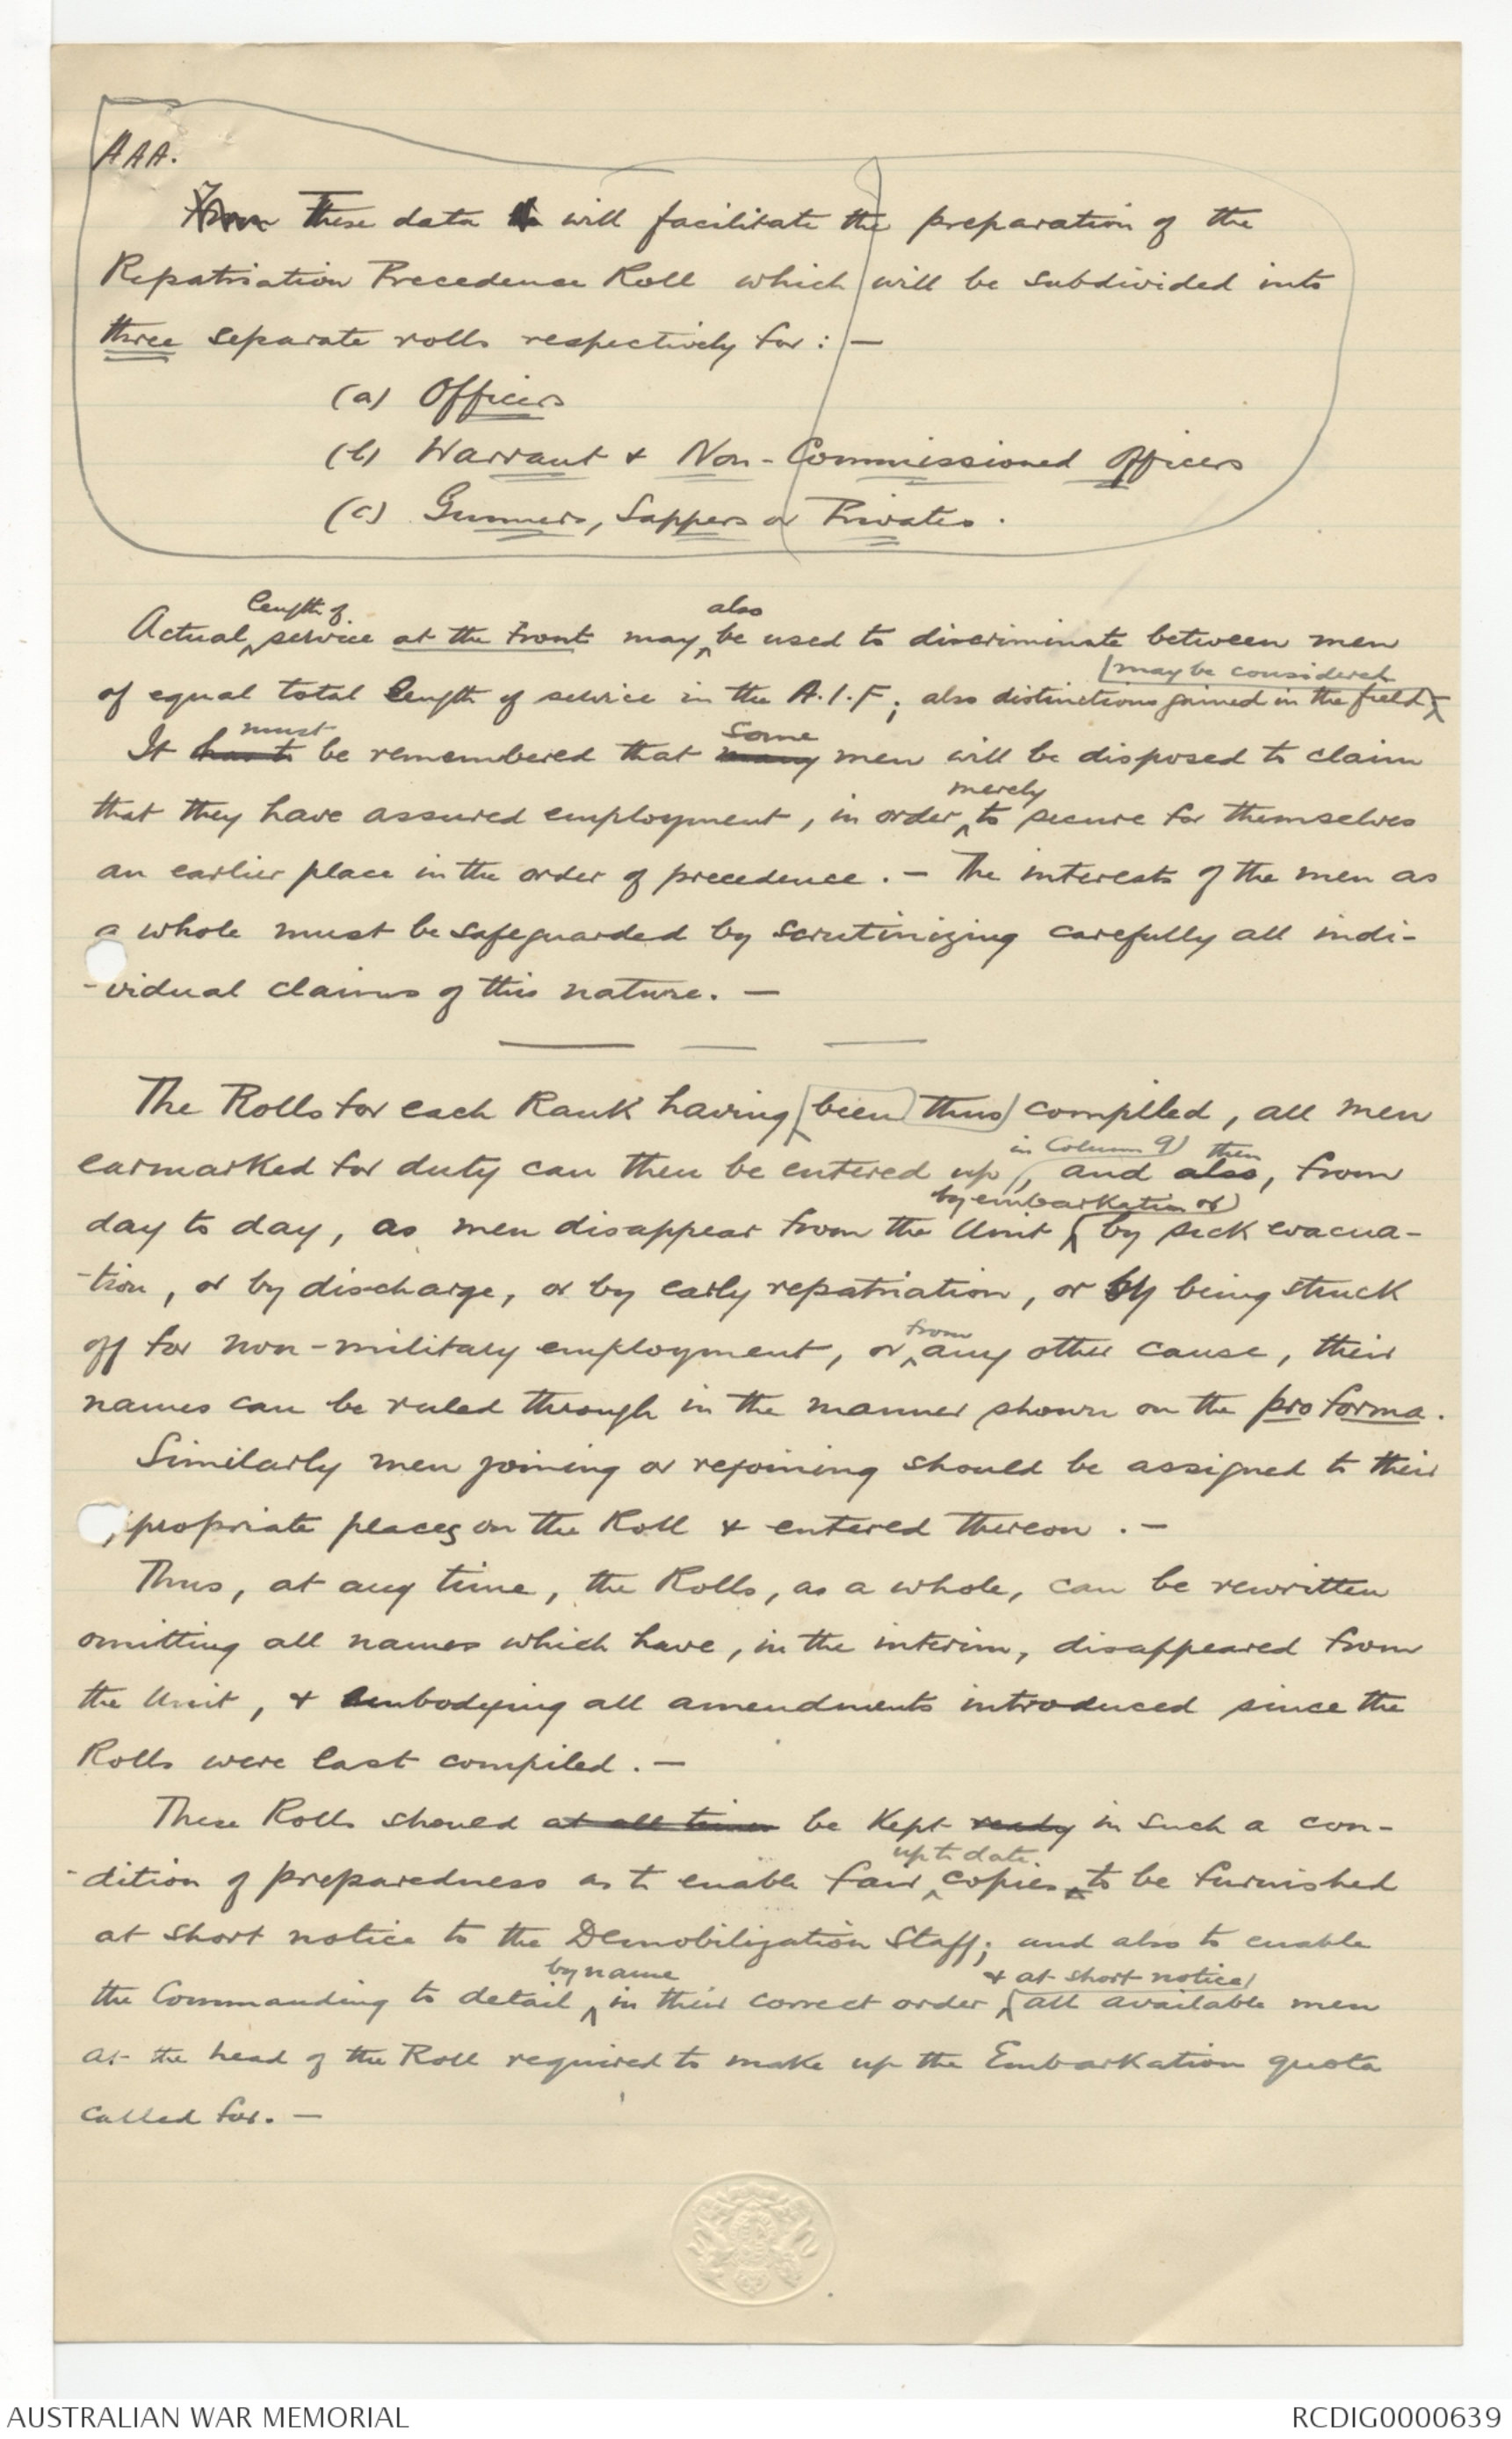 AAA.
From These data will facilitate the preparation of the
Repatriation Precedence Roll which will be subdivided into
three separate rolls respectively for :—
(a) Officers
(b) Warrant & Non-Commissioned Officers
(c) Gunners, Sappers or Privates.
length of also
Actual service at the Front may be used to discriminate between men
may be considered
of equal total length of service in the A.I.F; also distinctions gained in the field
must some
It has to be remembered that many men will be disposed to claim
merely
that they have assured employment, in order to secure for themselves
an earlier place in the order of precedence. — The interests of the men as
a whole must be safeguarded by scrutinizing carefully all indi-
-vidual claims of this nature. —
The Rolls for each Rank having been thus compiled, all men
in Column 9 then
earmarked for duty can then be entered up, and also, from
by embarkation or
day to day, as men disappear from the Unit by sick evacua-
-tion, or by discharge, or by early repatriation, or by being struck
from
off for non-military employment, or any other cause, their
names can be ruled through in the manner shown on the pro forma.
Similarly men joining or rejoining should be assigned to their
propriate places on the Roll & entered thereon. —
Thus, at any time, the Rolls, as a whole, can be rewritten
omitting all names which have, in the interim, disappeared from
the Unit, & embodying all amendments introduced since the
Rolls were last compiled. —
These Rolls should at all times be Kept ready in such a con-
up to date.
-dition of preparedness as to enable fair copies to be furnished
at short notice to the Demobilization Staff; and also to enable
by name & at short notice
the Commanding to detail in their correct order all available men
at the head of the Roll required to make up the Embarkation quota
called for. —
AUSTRALIAN WAR MEMORIAL RCDIG0000639